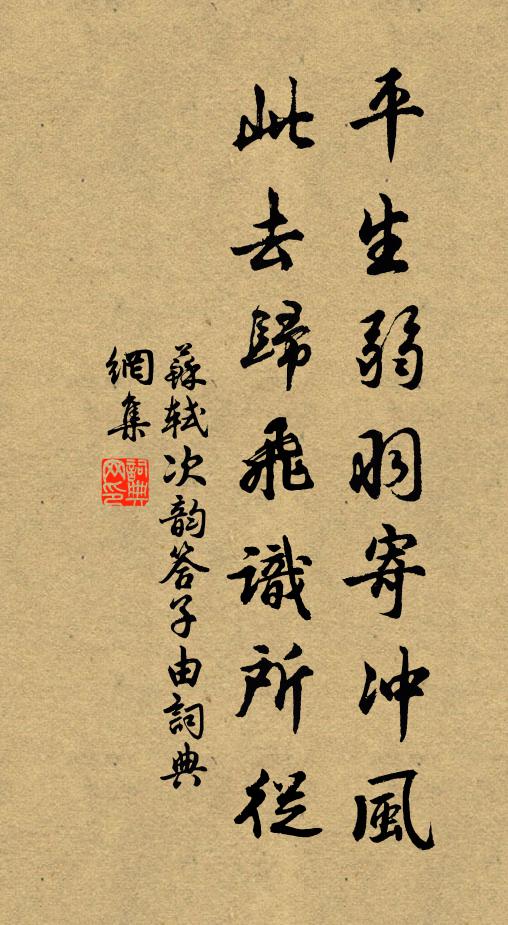 平生弱羽寄冲風
此去歸飛識所從
蘇軾次韵答子由詞典
網集
詞典
网印